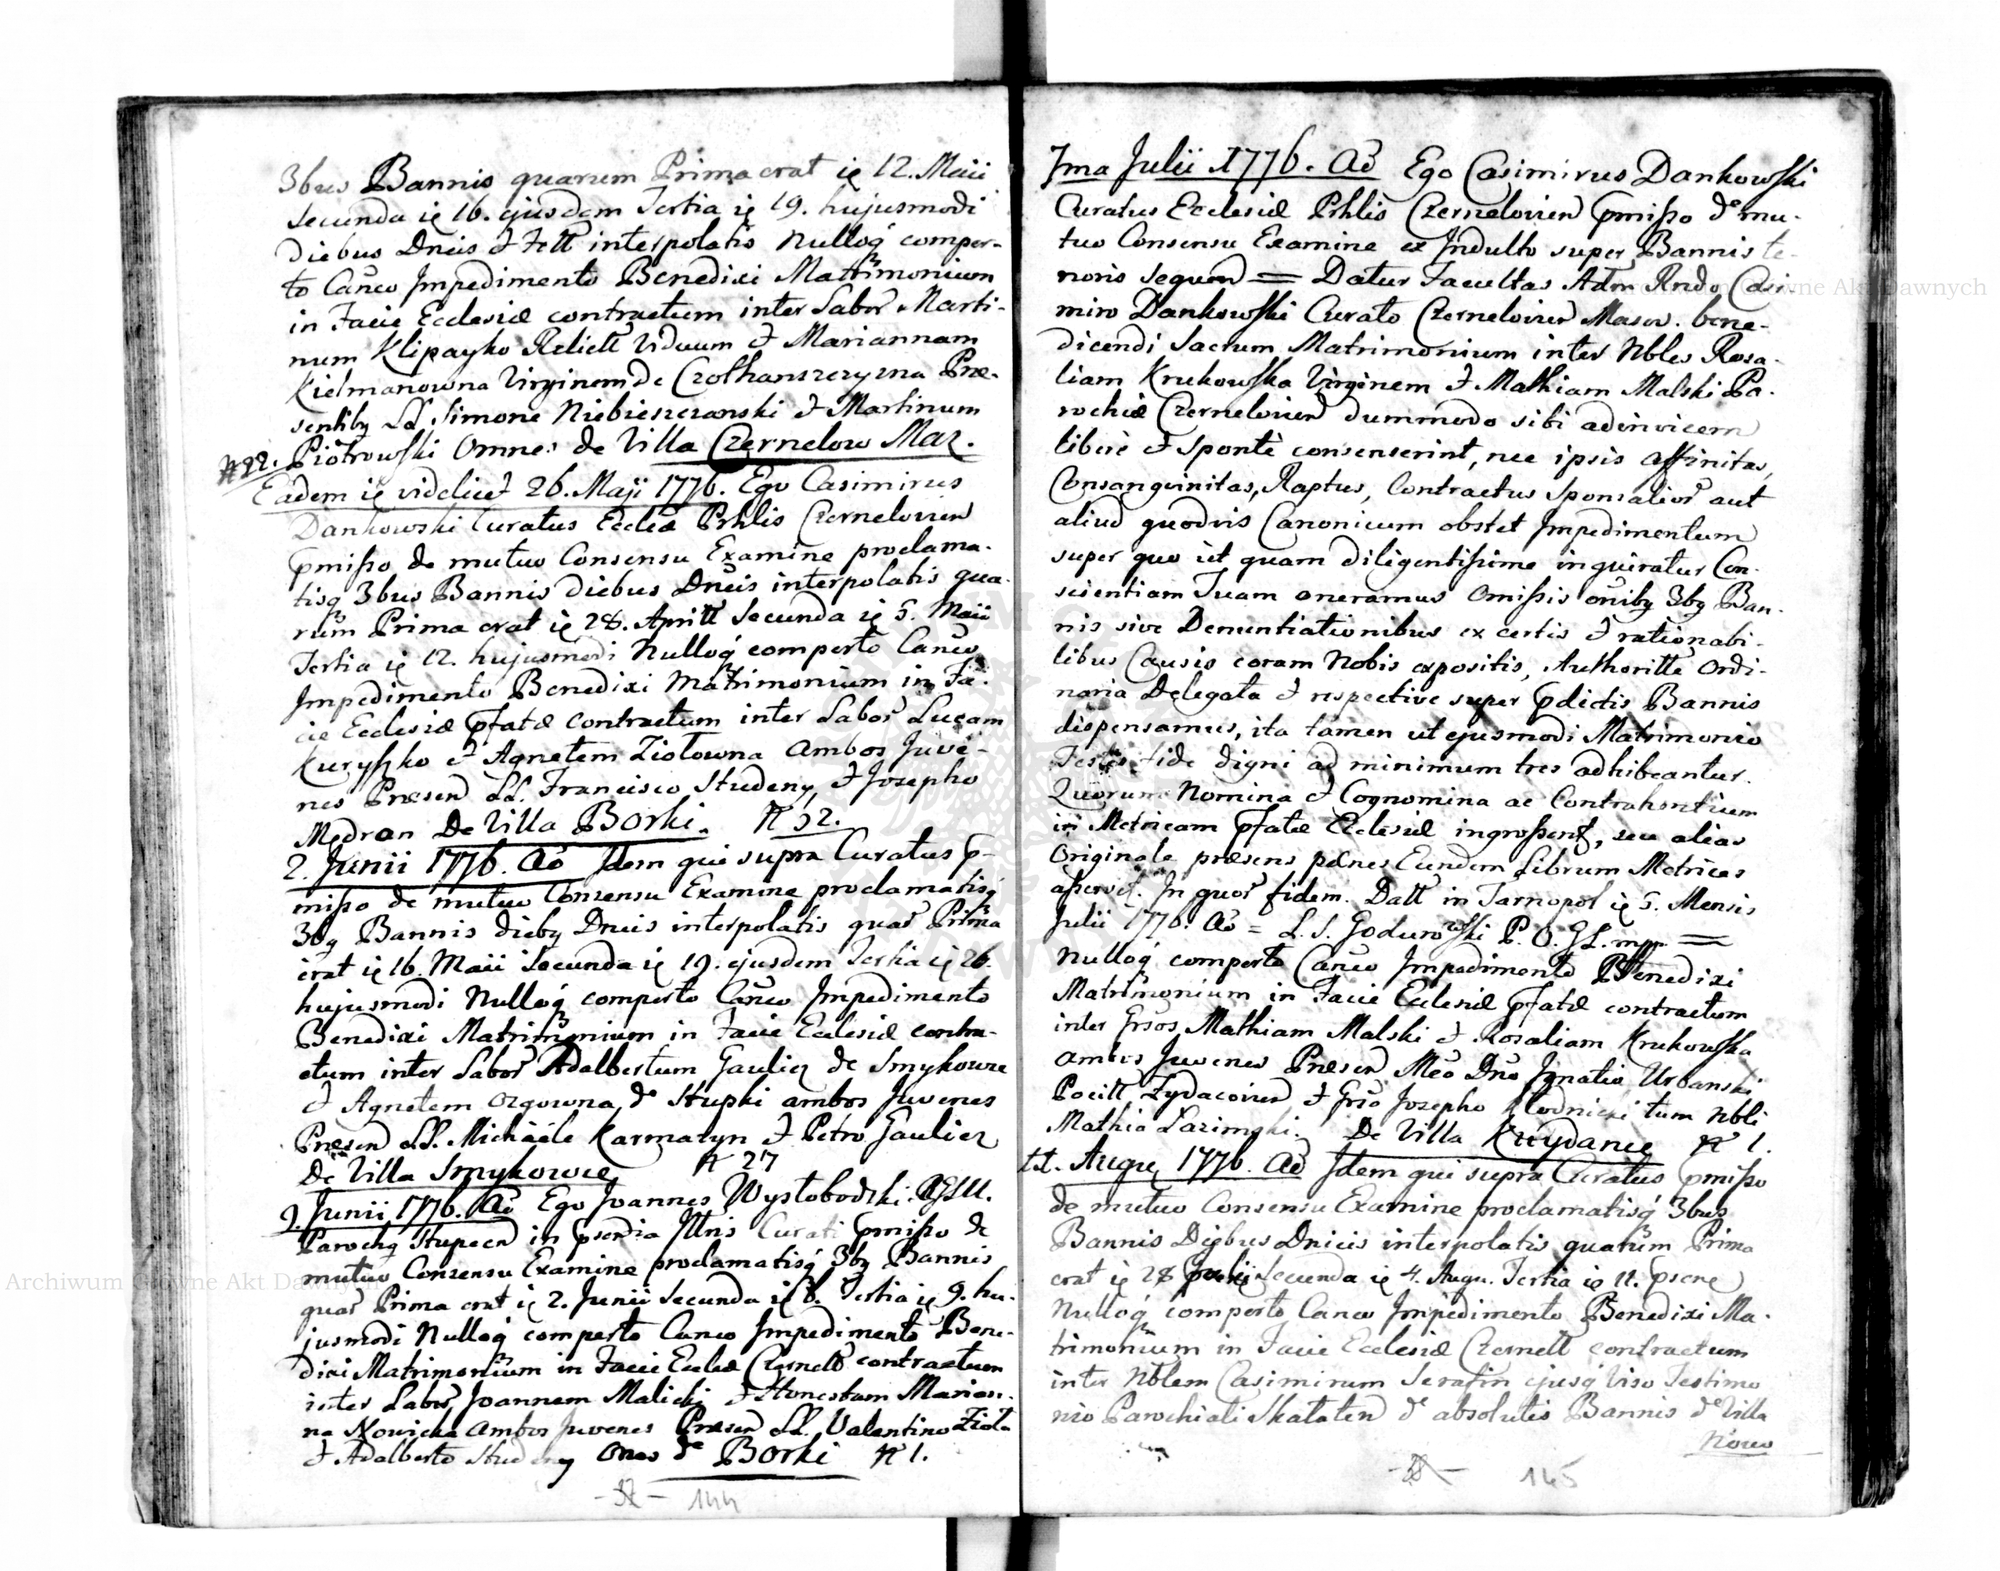 3bus Bannis quarum Prima erat ię 12. Maii
Secunda ię 16. ejusdem Tertia ię 19. hujusmodi
diebus Dnĩcis & Festt interpolatis Nulloq́ comper-
to Canco Impedimento Benedixi Matrimonium
in Facie Ecclesiæ contractum inter Labor Marti-
num Klipayko Relictt Viduum & Mariannam
Kielmanowna Virginem de Czołhanszczyzna Præ-
sentibg LL. Simone Niebieszczanski & Martinum
Piotrowski Omnes de Villa Czernelow Maz.
N 22.
Eadem ię videlicet 26. Maji 1776. Ego Casimirus
Dankowski Curatus Eccleæ Prhlis Czerneloviens
pmisso de mutuo Consensu Examine proclama-
tisq 3bus Bannis diebus Dnicis interpolatis qua-
rum Prima erat ię 28. Aprill Secunda ię 5. Maii
Tertia ię 12. hujusmodi Nulloq́ comperto Canco
Impedimento Benedixi Matrimonium in Fa-
cie Ecclesiæ pfatæ contractum inter Labor Lucam
Kuryszko & Agnetem Ziołowna Ambos Juve-
nes Præsen LL. Francisco Studeny, & Josepho
Mędran De Villa Borki. N 32.
2. Junii 1776. Aõ Idem qui supra Curatus p-
misso de mutuo Consensu Examine proclamatisq́
3bg Bannis diebg Dnicis interpolatis quar Prima
erat ię 16. Maii Secunda ię 19. ejusdem Tertia ię 26.
hujusmodi Nulloq́ comperto Canco Impedimento
Benedixi Matrimonium in Facie Ecclesiæ contra-
ctum inter Labor Adalbertum Gaulicz de Smykowce
& Agnetem Ozgowna de Stupki ambos Juvenes
Præsen LL. Michaële Karmazyn & Petro Gaulicz
De Villa Smykowce N 27
9. Junii 1776. Aõ Ego Joannes Wysłobodzki
Parochg Stupecen in psentia Illris Curati pmisso de
mutuo Consensu Examine proclamatisq́ 3bg Bannis
quar Prima erat ię 2. Junii Secunda ię 6. Tertia ię 9. hu-
jusmodi Nulloq́ comperto Canco Impedimento Bene-
dixi Matrimonium in Facie Eccleæ Czernell contractum
inter Labor Joannem Malicki & Honestam Marian-
na Nowicka Ambos Juvenes Præsen LL. Valentino Zioła
& Adalberto Studeny Ones de Borki N 1.
144
1ma Julii 1776. Aõ Ego Casimirus Dankowski
Curatus Ecclesiæ Prhlis Czerneloviens pmisso de mu-
tuo Consensu Examine ex Indulto super Bannis te-
noris sequen = Datur Facultas Adm Rndo Casi-
miro Dankowski Curato Czerneloviens Masov. bene-
dicendi Sacrum Matrimonium inter Nbles Rosa-
liam Krukowska Virginem & Mathiam Malski Pa-
rochiæ Czerneloviens dummodo sibi adinvicem
liberè & Spontè consenserint, nec ipsis Affinitas,
Consanguinitas, Raptus, Contractus Sponsalior aut
aliud quodvis Canonicum obstet Impedimentum
super quo ut quam diligentissime inquiratur Con-
scientiam Tuam oneramus Omissis oñibg 3bg Ban-
nis sive Denuntiationibus ex certis & rationabi-
libus Causis coram Nobis expositis, Authoritte Ordi-
naria Delegata & respective super pdictis Bannis
dispensamus, ita tamen ut ejusmodi Matrimonio
Testes fide digni ad minimum tres adhibeantur.
Quorum Nomina & Cognomina ac Contrahentium
in Metricam pfatæ Ecclesiæ ingrossent, seu alias
Originale præsens pænes Eundem Librum Metrices
asservet. In quor fidem. Datt in Tarnopol ię 5. Mensis
Julii 1776. Aõ = L. S. Godurowski P. O. GL. mpp =
Nulloq́ comperto Canco Impedimento Benedixi
Matrimonium in Facie Ecclesiæ pfatæ contractum
inter Grsos Mathiam Malski & Rosaliam Krukowska
ambos Juvenes Præsen Mco Dno Ignatio Urbanski
Pocill Zydacovien & Grso Josepho Kłodnicki tum Nbli
Mathia Lazimski. De Villa Krzydance N 1.
11. Augg 1776. Aõ Idem qui supra Curatus pmisso
de mutuo Consensu Examine proclamatisq́ 3bus
Bannis Diebus Dnicis interpolatis quarum Prima
erat ię 28 Julii Secunda ię 4. Augu. Tertia ię 11. psene
Nulloq́ comperto Canco Impedimento Benedixi Ma-
trimonium in Facie Ecclesiæ Czernell contractum
inter Nblem Casimirum Serafin ejusq́ Viso Testimo
nio Parochiali Skałaten de absolutis Bannis de Villa
Nowo
145
Archiwum Główne Akt Dawnych
Archiwum Główne Akt Dawnych